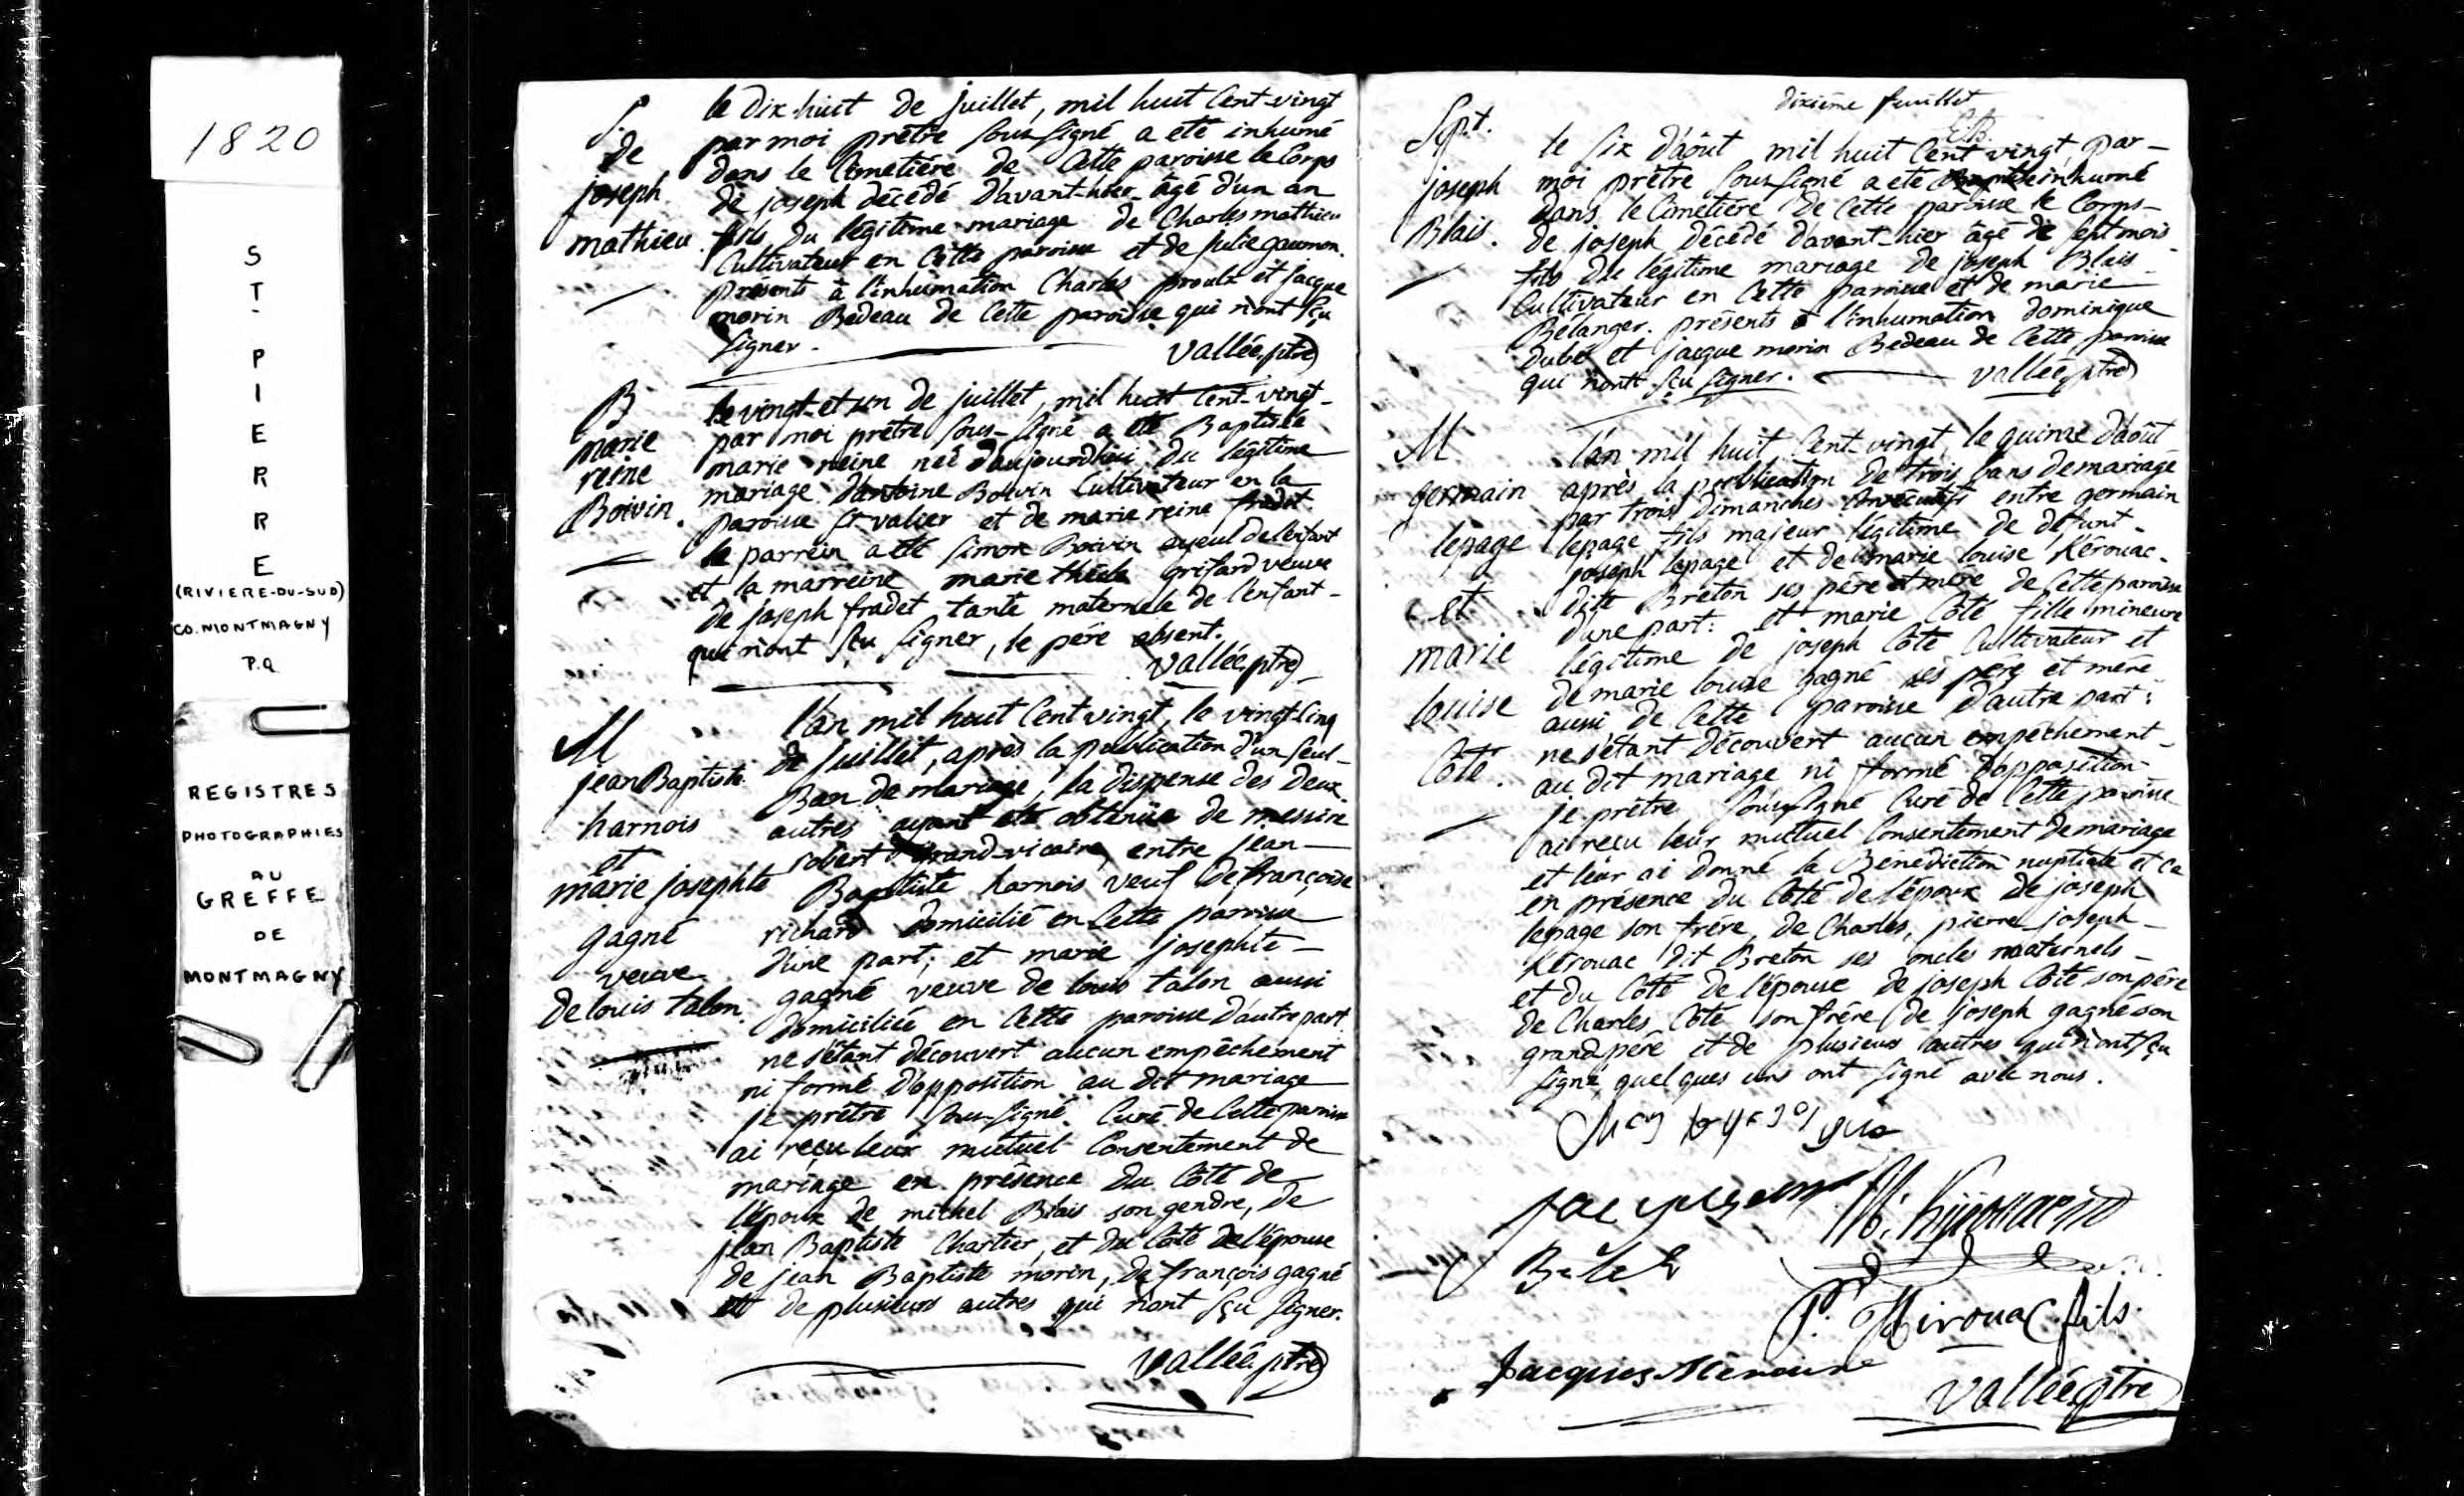 1820
ST-PIERRE
(RIVIERE-DU-SUD)
CO. MONTMAGNY
P.Q
REGISTRES
PHOTOGRAPHIES
AU
GREFFE
DE
MONTMAGNY
S.
de
joseph
mathieu.
le dix-huit de juillet, mil huit Cent-vingt
par moi prêtre sous-signé a été inhumé
dans le Cimetiére de Cette paroisse le Corps
de joseph décédé davant-hier âgé d'un an
fils du légitime mariage de Charles mathieu
Cultivateur en Cette paroisse et de julie gaumon.
présents à l'inhumation Charles proulx et jacque
morin Bedeau de Cette paroisse qui n'ont sçu
signer.
Vallée ptre
B
marie
reine
Boivin.
le vingt-et un de juillet, mil huit Cent-vingt-
par moi prêtre sous-signé a été Baptisée
marie reine neé daujourdhui du légitime
mariage d'antoine Boivin Cultivateur en la
paroisse St valier et de marie reine fradet
le parrein a été simon Boivin ayeul de l'enfant
et la marreine marie thècle grifard veuve
de joseph fradet tante maternele de l'enfant-
qui n'ont sçu signer, le père absent.
Vallée ptre
M
jean Baptiste
harnois
et
marie josephte
gagné
veuve
de louis talon.
l'an mil huit Cent vingt, le vingt-Cinq
de juillet, après la publication d'un seul-
Ban de mariage, la dispense des deux
autres ayant été obtenüe de messire
robert grand-vicaire, entre jean-
Baptiste harnois veuf de françoise
richard domicilié en Cette paroisse
d'une part; et marie josephte-
gagné veuve de louis talon aussi
domiciliée en Cette paroisse d'autre part.
ne s'étant découvert aucun empêchement
ni formé d'opposition au dit mariage
je prêtre sous-signé Curé de Cette paroisse
ai reçu leur mutuel Consentement de
mariage en présence du Côté de
l'époux de michel Blais son gendre, de
jean Baptiste Chartier, et du Côté de l'épouse
de jean Baptiste morin, de françois gagné
et de plusieurs autres qui n'ont sçu signer.
Vallée ptre
dixième feuillet
Sépt.
joseph
Blais.
le six d'août mil huit Cent vingt, par-
moi prêtre sous-signé a été inhumé
dans le Cimétiére de Cette paroisse le Corps-
de joseph décédé davant-hier âgé de sept mois
fils du légitime mariage de joseph Blais
Cultivateur en Cette paroisse et de marie
Bélanger. présents à l'inhumation dominique
dubé et jacque morin Bedeau de Cette paroisse
qui n'ont sçu signer.
Vallée ptre
M
germain
lepage
et
marie
louise
Côté.
l'an mil huit Cent-vingt, le quinze d'août
après la publication de trois bans de mariage
par trois dimanches Consécutifs entre germain
lepage fils majeur légitime de défunt-
joseph lepage et de marie louise Kérouac-
dite Breton ses père et mère de Cette paroisse
d'une part: et marie Côté fille mineure
légitime de joseph Côté Cultivateur et
de marie louise gagné ses père et mère
aussi de Cette paroisse d'autre part:
ne s'étant découvert aucun empêchement-
au dit mariage ni formé d'opposition
je prêtre sous-signé Curé de Cette paroisse
ai reçu leur mutuel Consentement de mariage
et leur ai donné la Bénédiction nuptiale et ce
en présence du Côté de l'époux de joseph
lepage son frére, de Charles, pierre joseph-
Kérouac dit Breton ses oncles maternels-
et du Côté de l'épouse de joseph Côté son père
de Charles Côté son frére, de joseph gagné son
grand père et de plusieurs autres qui n'ont sçu
signé, quelques uns ont signé avec nous.
P. Kirouac fils
Jacques
Vallée ptre